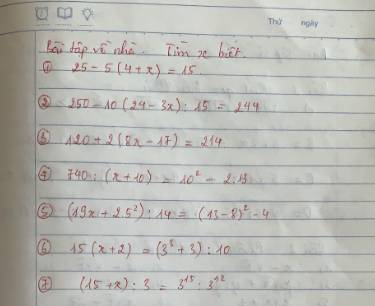 Thứ ngày
Bài tập về nhà. Tìm x biết.
① 25 - 5 (4 + x) = 15.
② 250 - 10 (24 - 3x) : 15 = 244
③ 120 + 2 (8x - 17) = 214
④ 740 : (x + 10) = 10² - 2.13
⑤ (19x + 2.5²) : 14 = (13 - 8)² - 4
⑥ 15 (x + 2) = (3³ + 3) : 10
⑦ (15 + x) : 3 = 3¹⁵ : 3¹²